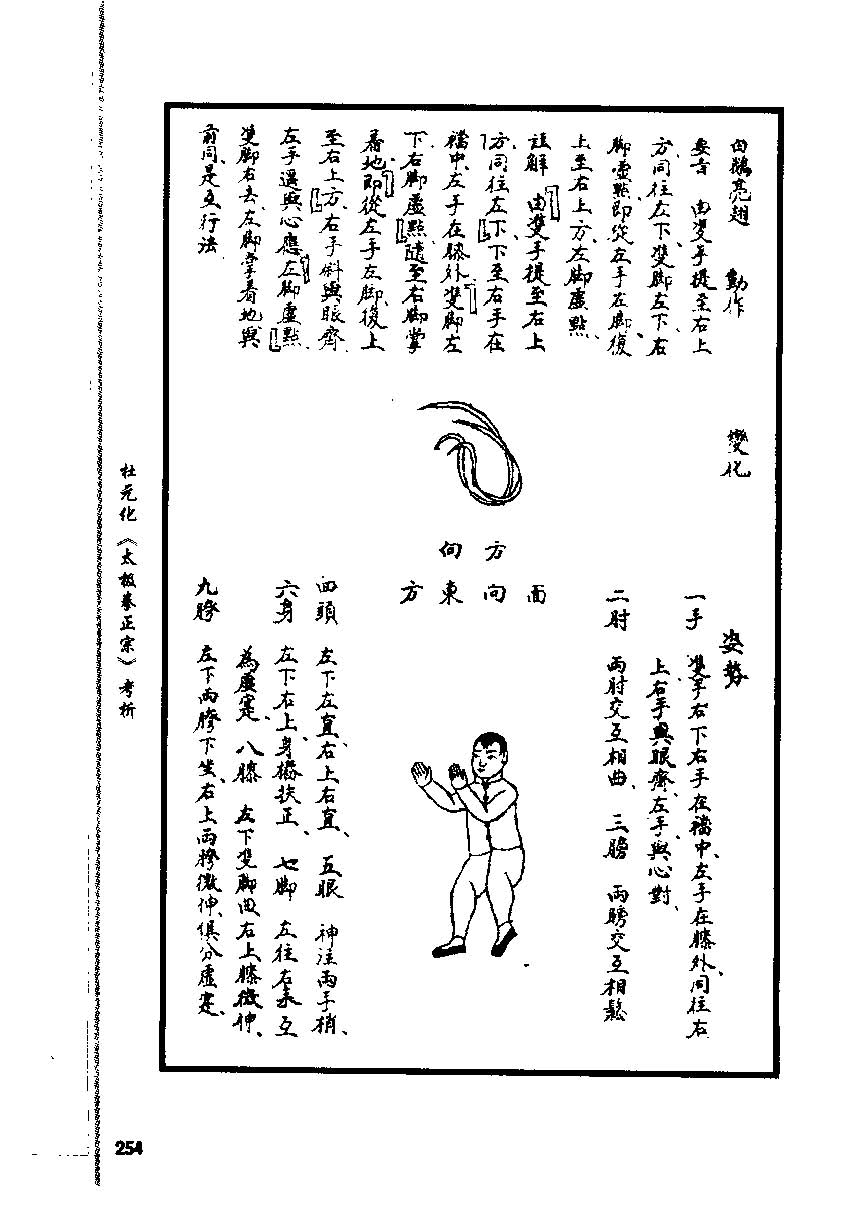 白鵝亮翅 動作 變化
要言 由雙手提至右上
方、同往左下、雙脚左下、右
脚虛點、即從左手左脚、復
上至右上方、左脚虛點、
註解 由雙手提至右上
方、同往左下、下至右手在
襠中、左手在膝外、雙脚左
下、右脚虛點、隨至右脚掌
着地、即從左手左脚、復上
至右上方、右手斜與眼齊、
左手遥與心應、左脚虛點、
雙脚右去、左脚掌着地、與
前同、是互行法、
方向
面向東方
姿勢
一手 雙手右下、右手在襠中、左手在膝外、同往右
上、右手與眼齊、左手與心對、
二肘 兩肘交互相曲、 三膀 兩膀交互相鬆
四頭 左下左直、右上右直、 五眼 神注兩手梢、
六身 左下右上、身椿扶正、 七脚 左往右來、互
為虛寔、 八膝 左下雙脚曲、右上膝微伸、
九胯 左下兩胯下坐、右上兩胯微伸、俱分虛寔、
杜元化《太极拳正宗》考析
254